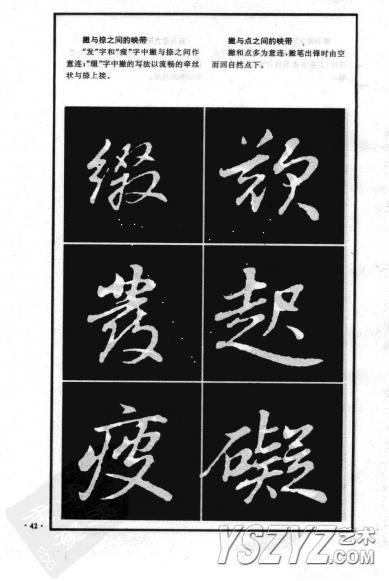 撇与捺之间的映带
“发”字和“瘦”字中撇与捺之间作
意连;“缀”字中撇的写法以流畅的牵丝
状与捺上接。
撇与点之间的映带
撇和点多为意连,撇笔出锋时由空
而回自然点下。
缀
發
疲
起
礙
·42·
YSZYZ艺术
.COM